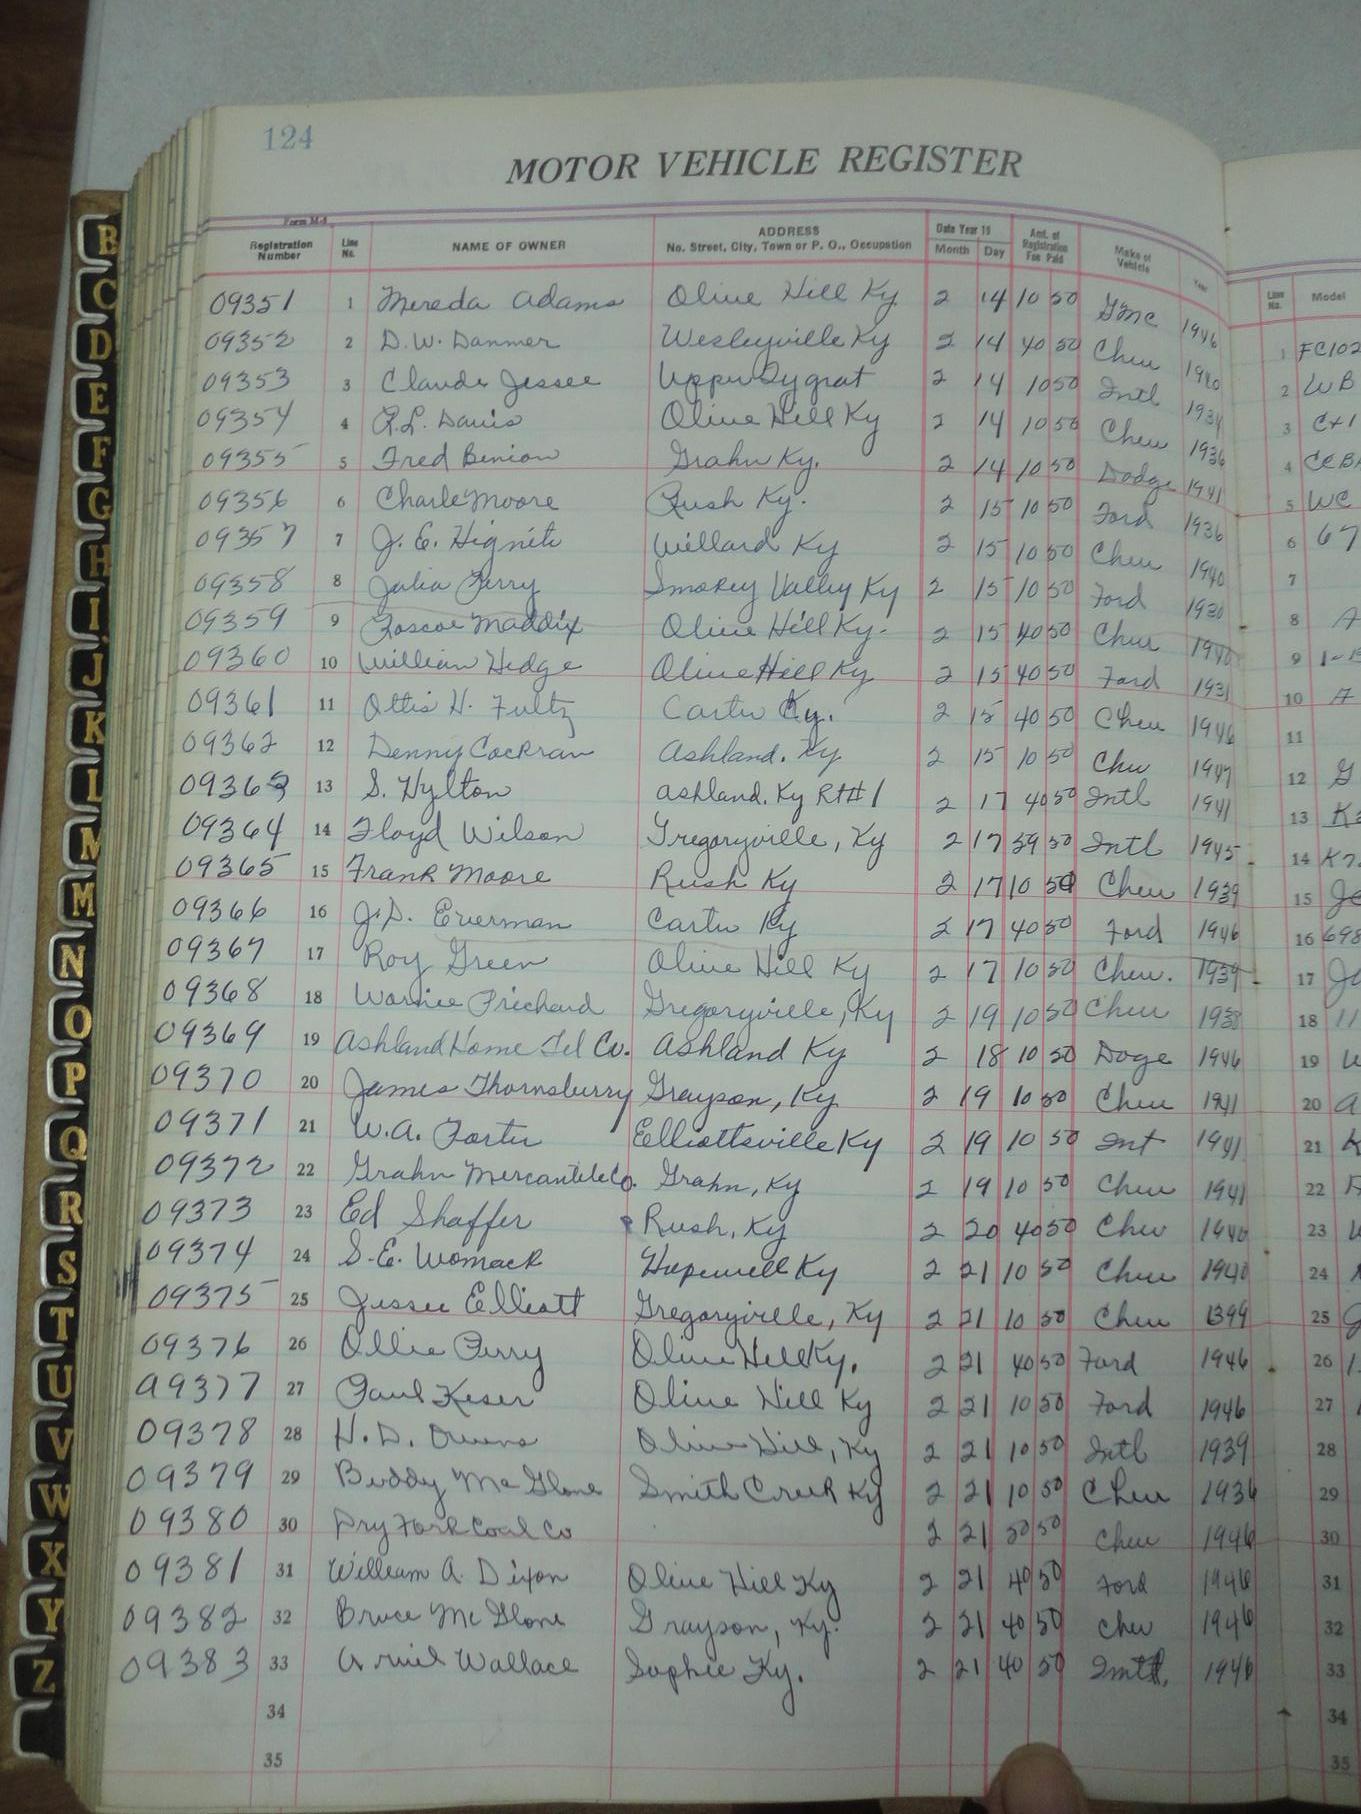 124
MOTOR VEHICLE REGISTER
Form M-4
Registration Number Line No. NAME OF OWNER ADDRESS No. Street, City, Town or P. O., Occupation Date Year 19 Month Day Amt. of Registration Fee Paid Make of Vehicle Year Line No. Model
09351 1 Mereda Adams Olive Hill Ky 2 14 10 50 GMC 1946 1 FC102
09352 2 D.W. Danner Wesleyville Ky 2 14 40 50 Chev 1940 2 WB
09353 3 Claude Jessee Upper Tygrat 2 14 10 50 Intl 1934 3
09354 4 R.L. Davis Olive Hill Ky 2 14 10 50 Chev 1936 4
09355 5 Fred Binion Grahn Ky. 2 14 10 50 Dodge 1941 5 WC
09356 6 Charle Moore Rush Ky. 2 15 10 50 Ford 1936 6 67
09357 7 J. E. Hignite Willard Ky 2 15 10 50 Chev 1940 7
09358 8 Julia Perry Smokey Valley Ky 2 15 10 50 Ford 1930 8 A
09359 9 Roscoe Maddix Olive Hill Ky. 2 15 40 50 Chev 1940 9
09360 10 William Hedge Olive Hill Ky 2 15 40 50 Ford 1931 10 A
09361 11 Ottis H. Fultz Carter Ky. 2 15 40 50 Chev 1946 11
09362 12 Denny Cockran Ashland. Ky 2 15 10 50 Chev 1947 12 G
09363 13 S. Hylton Ashland. Ky Rt# 1 2 17 40 50 Intl 1941 13
09364 14 Floyd Wilson Gregoryville, Ky 2 17 39 50 Intl 1945 14
09365 15 Frank Moore Rush Ky 2 17 10 50 Chev 1939 15
09366 16 J.D. Everman Carter Ky 2 17 40 50 Ford 1946 16 698
09367 17 Roy Green Olive Hill Ky 2 17 10 50 Chev. 1939 17
09368 18 Warnie Prichard Gregoryville, Ky 2 19 10 50 Chev 1938 18 11
09369 19 Ashland Home Tel Co. Ashland Ky 2 18 10 50 Doge 1946 19
09370 20 James Thornsburry Grayson, Ky 2 19 10 50 Chev 1941 20
09371 21 W.A. Porter Elliottsville Ky 2 19 10 50 Int 1941 21 K
09372 22 Grahn Mercantile Co. Grahn, Ky 2 19 10 50 Chev 1941 22
09373 23 Ed Shaffer Rush, Ky 2 20 40 50 Chev 1940 23
09374 24 S.E. Womack Hopewell Ky 2 21 10 50 Chev 1940 24
09375 25 Jessee Elliott Gregoryville, Ky 2 21 10 50 Chev 1399 25
09376 26 Ollie Perry Olive Hill Ky. 2 21 40 50 Ford 1946 26
09377 27 Paul Keser Olive Hill Ky 2 21 10 50 Ford 1946 27
09378 28 H. D. Owens Olive Hill, Ky 2 21 10 50 Intl 1939 28
09379 29 Buddy McGlone Smith Creek Ky 2 21 10 50 Chev 1936 29
09380 30 Dry Fork Coal Co 2 21 50 50 Chev 1946 30
09381 31 William A. Dixon Olive Hill Ky 2 21 40 50 Ford 1946 31
09382 32 Bruce McGlone Grayson, Ky. 2 21 40 50 Chev 1946 32
09383 33 Wallace Sophie Ky. 2 21 40 50 1946 33
34 34
35 35
B
C
D
E
F
G
H
I
J
K
L
M
M
N
O
P
Q
R
S
T
U
V
W
X
Y
Z